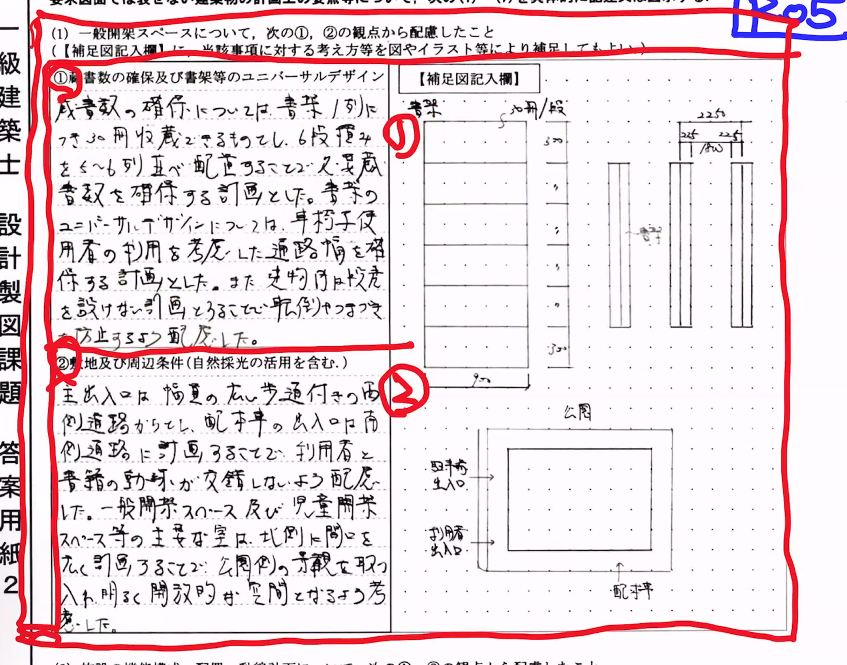 (1) 一般開架スペースについて，次の①，②の観点から配慮したこと
(【補足図記入欄】に，当該事項に対する考え方等を図やイラスト等により補足してもよい)
R05
一級建築士 設計製図課題 答案用紙2
①蔵書数の確保及び書架等のユニバーサルデザイン
蔵書数の確保については、書架1列に
つき30冊収蔵できるものとし、6段積み
を5〜6列並べ配置することで必要蔵
書数を確保する計画とした。書架の
ユニバーサルデザインについては、車椅子使
用者の利用を考慮した通路幅を確
保する計画とした。また建物内は段差
を設けない計画とすることで転倒やつまづき
を防止するよう配慮した。
②敷地及び周辺条件(自然採光の活用を含む.)
主出入口は幅員の広い歩道付きの西
側道路からとし、配本車の出入口は南
側道路に計画することで利用者と
書籍の動線が交錯しないよう配慮
した。一般開架スペース及び児童開架
スペース等の主要な室は、北側に間口を
広く計画することで公園側の景観を取り
入れ明るく開放的な空間となるよう考
慮した。
【補足図記入欄】
①
書架
30冊/段
300
〃
〃
〃
〃
300
900
2250
225
225
1800
書架
②
公園
駐車場
出入口
利用者
出入口
配本車